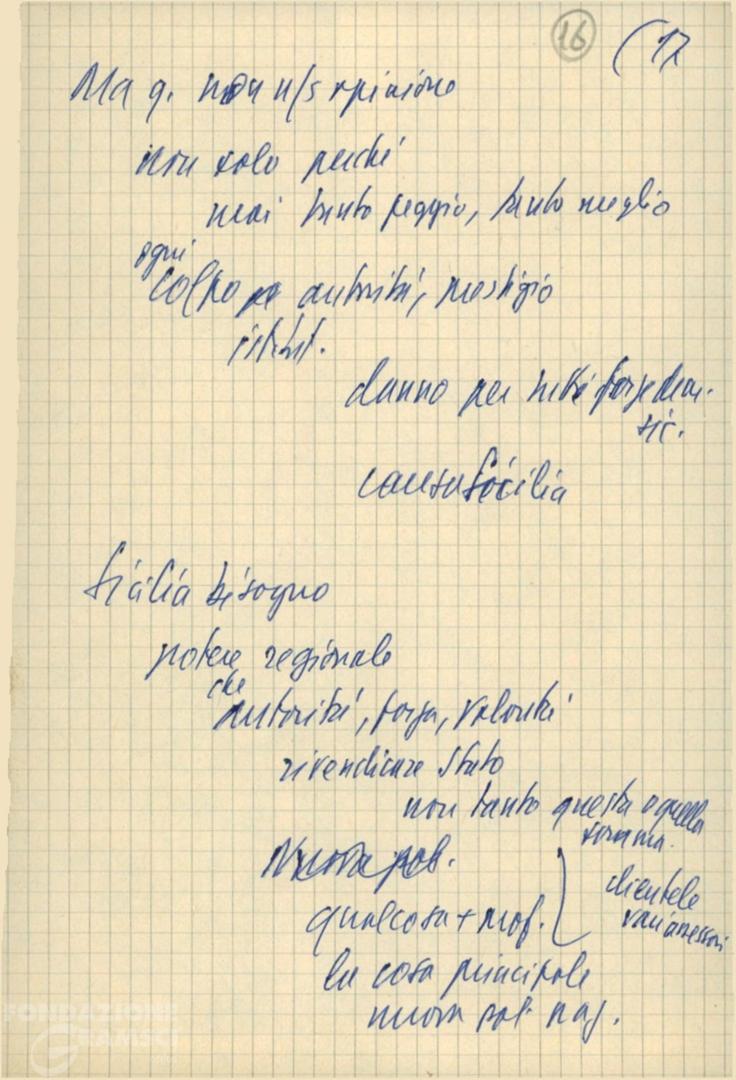 16 (17
Ma q. non n/s opinione
non solo perché
mai tanto peggio, tanto meglio
ogni
colpo autorità, prestigio
istit.
danno per tutte forze dem.
sic.
causa Sicilia
Sicilia bisogno
potere regionale
che
autorità, forza, volontà
rivendicare Stato
non tanto questa o quella
somma.
Nuova pol.
qualcosa + prof.
clientele
vari assessori
la cosa principale
nuova pol. naz.
FONDAZIONE
GRAMSCI